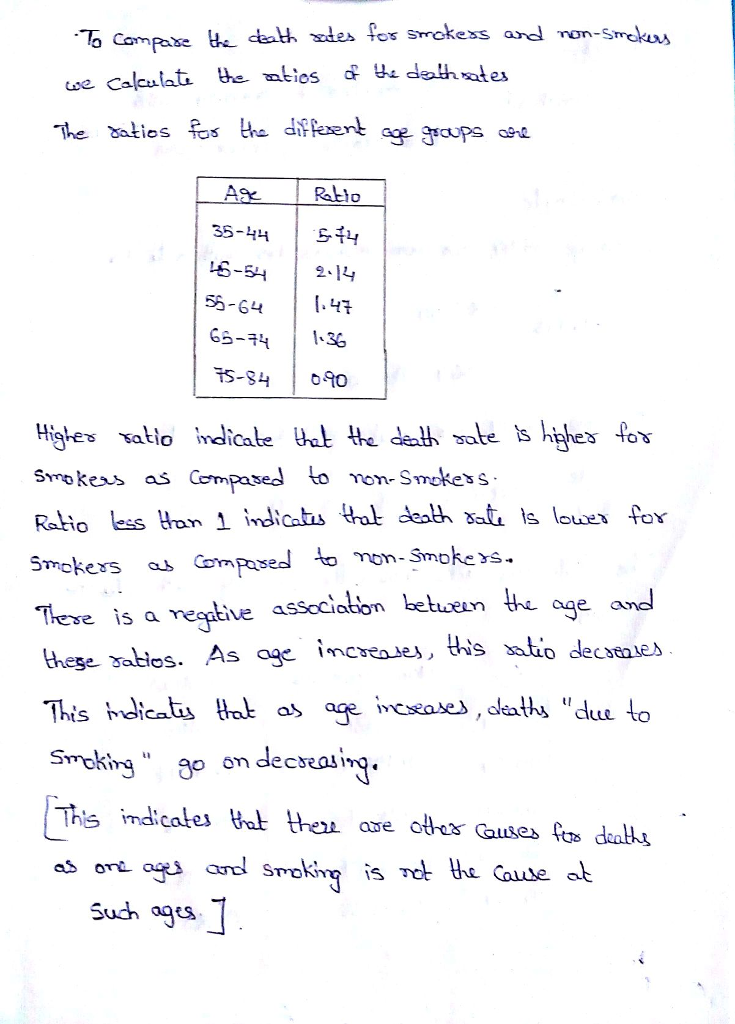 To Compare the death rates for smokers and non-smokers
we Calculate the ratios of the death rates
The ratios for the different age groups are
Age Ratio
35-44 5.74
45-54 2.14
55-64 1.47
65-74 1.36
75-84 0.90
Higher ratio indicate that the death rate is higher for
Smokers as Compared to non-Smokers.
Ratio less than 1 indicates that death rate is lower for
Smokers as Compared to non-Smokers.
There is a negative association between the age and
these ratios. As age increases, this ratio decreases.
This indicates that as age increases, deaths "due to
Smoking" go on decreasing.
[This indicates that there are other Causes for deaths
as one ages and smoking is not the Cause at
Such ages.]